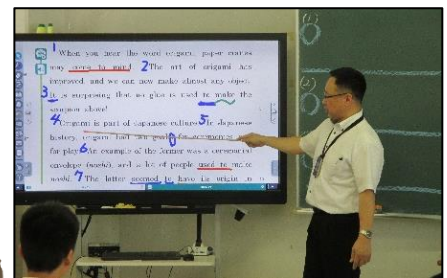 1 When you hear the word origami, paper cranes
may come to mind. 2 The art of origami has
improved, and we can now make almost any object.
3 It is surprising that no glue is used to make the
above!
4 Origami is part of Japanese culture. 5 In Japanese
history, origami had two goals: for ceremonies and
for play. 6 An example of the former was a ceremonial
envelope (noshi), and a lot of people used to make
noshi. 7 The latter seemed to have its origin in
(1)
(2)